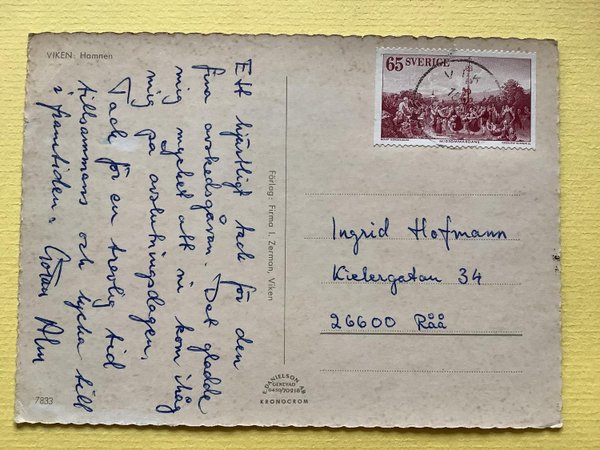 VIKEN: Hamnen
Ett hjärtligt tack för den
fina avskedsgåvan. Det gladde
mig mycket att ni kom ihåg
mig på avslutningsdagen.
Tack för en trevlig tid
tillsammans och lycka till
i framtiden. Göran Alm
7833
Förlag: Firma I. Zerman, Viken
E. DANIELSON AB
GENEVAD
0430/70218
KRONOCROM
65 SVERIGE
MIDSOMMARDANS
Ingrid Hofmann
Kielergatan 34
26600 Råå